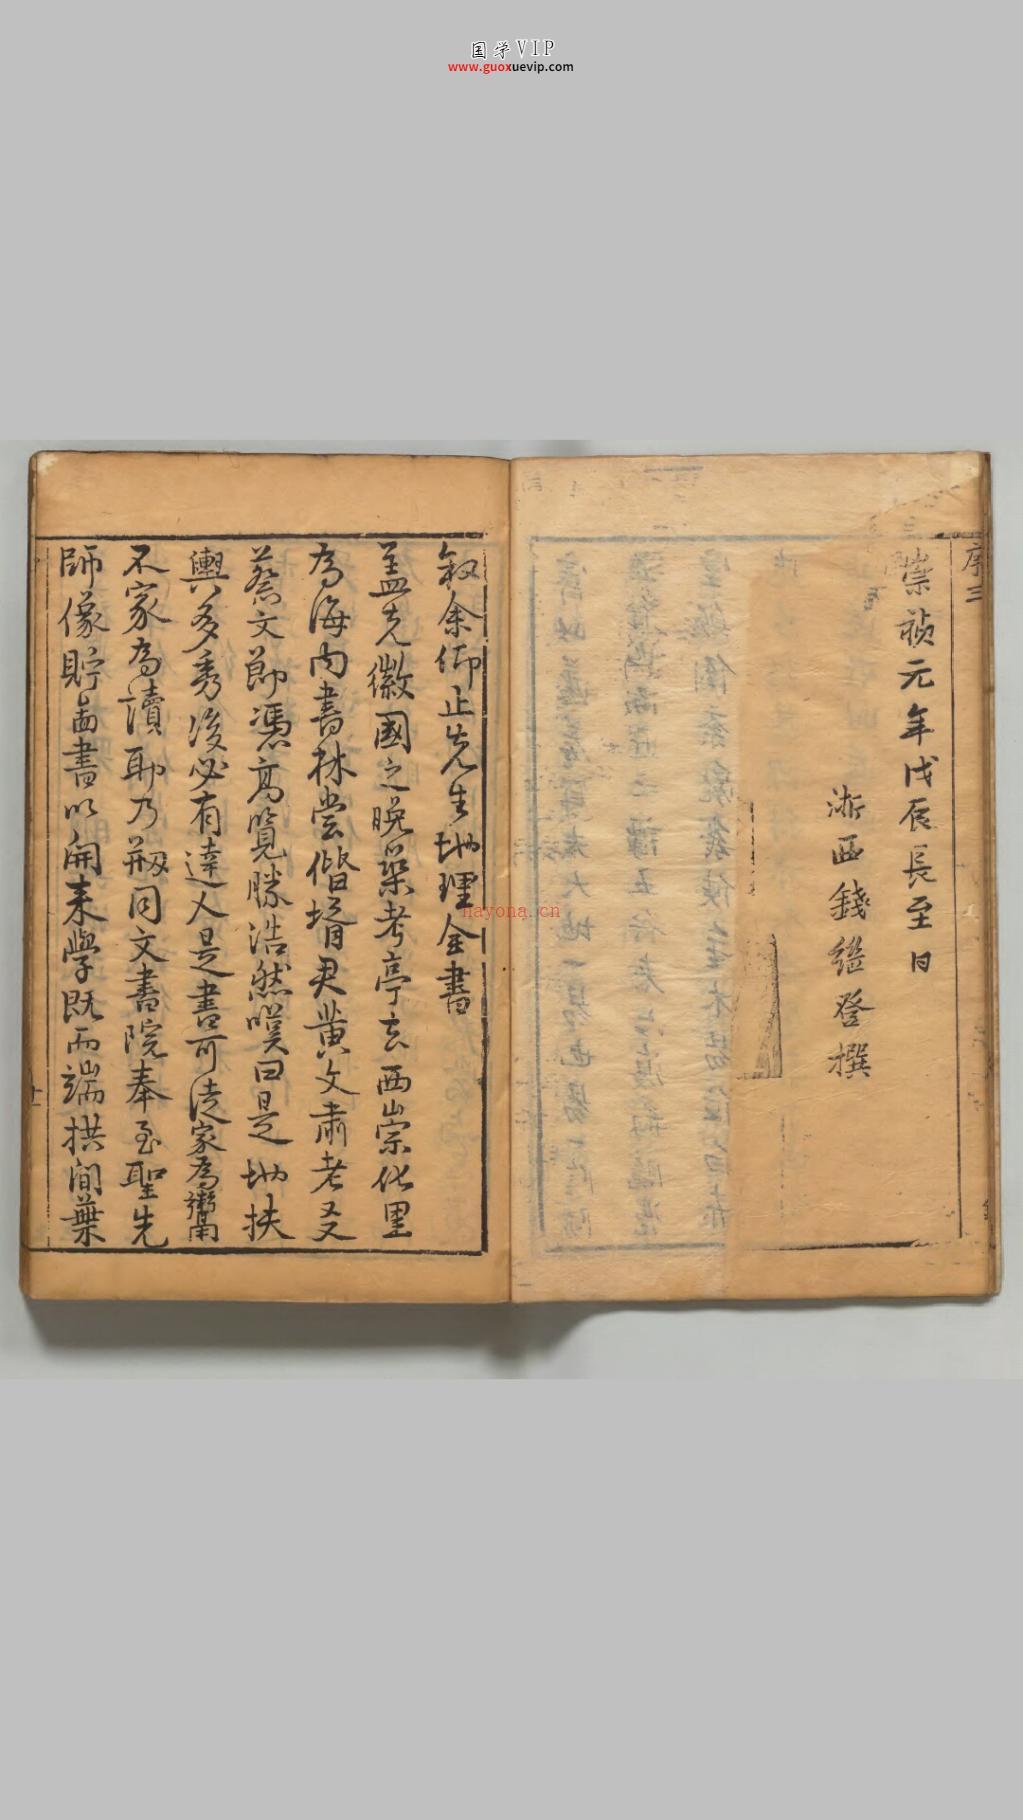 国学VIP
www.guoxuevip.com
序三
崇禎元年戊辰長至日
浙西錢繼登撰
叙余仰止先生地理全書
盖先徽國之晚築考亭玄西山宗化里
為海内書林嘗偕壻君黄文肅老又
蔡文節憑高覽勝浩然嘆曰是地扶
輿多秀後必有達人是書可徒家為鬻
不家為讀耶乃剏同文書院奉至聖先
師像貯畵書以開来學既而端拱間葉
nayona.cn